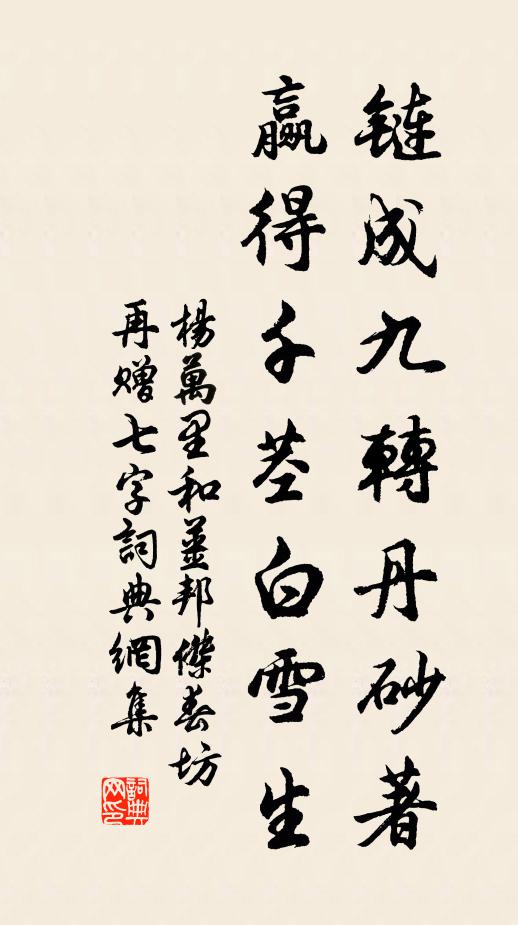 鏈成九轉丹砂著
贏得千莖白雪生
楊萬里和薑邦傑春坊
再贈七字詞典網集
詞典網印